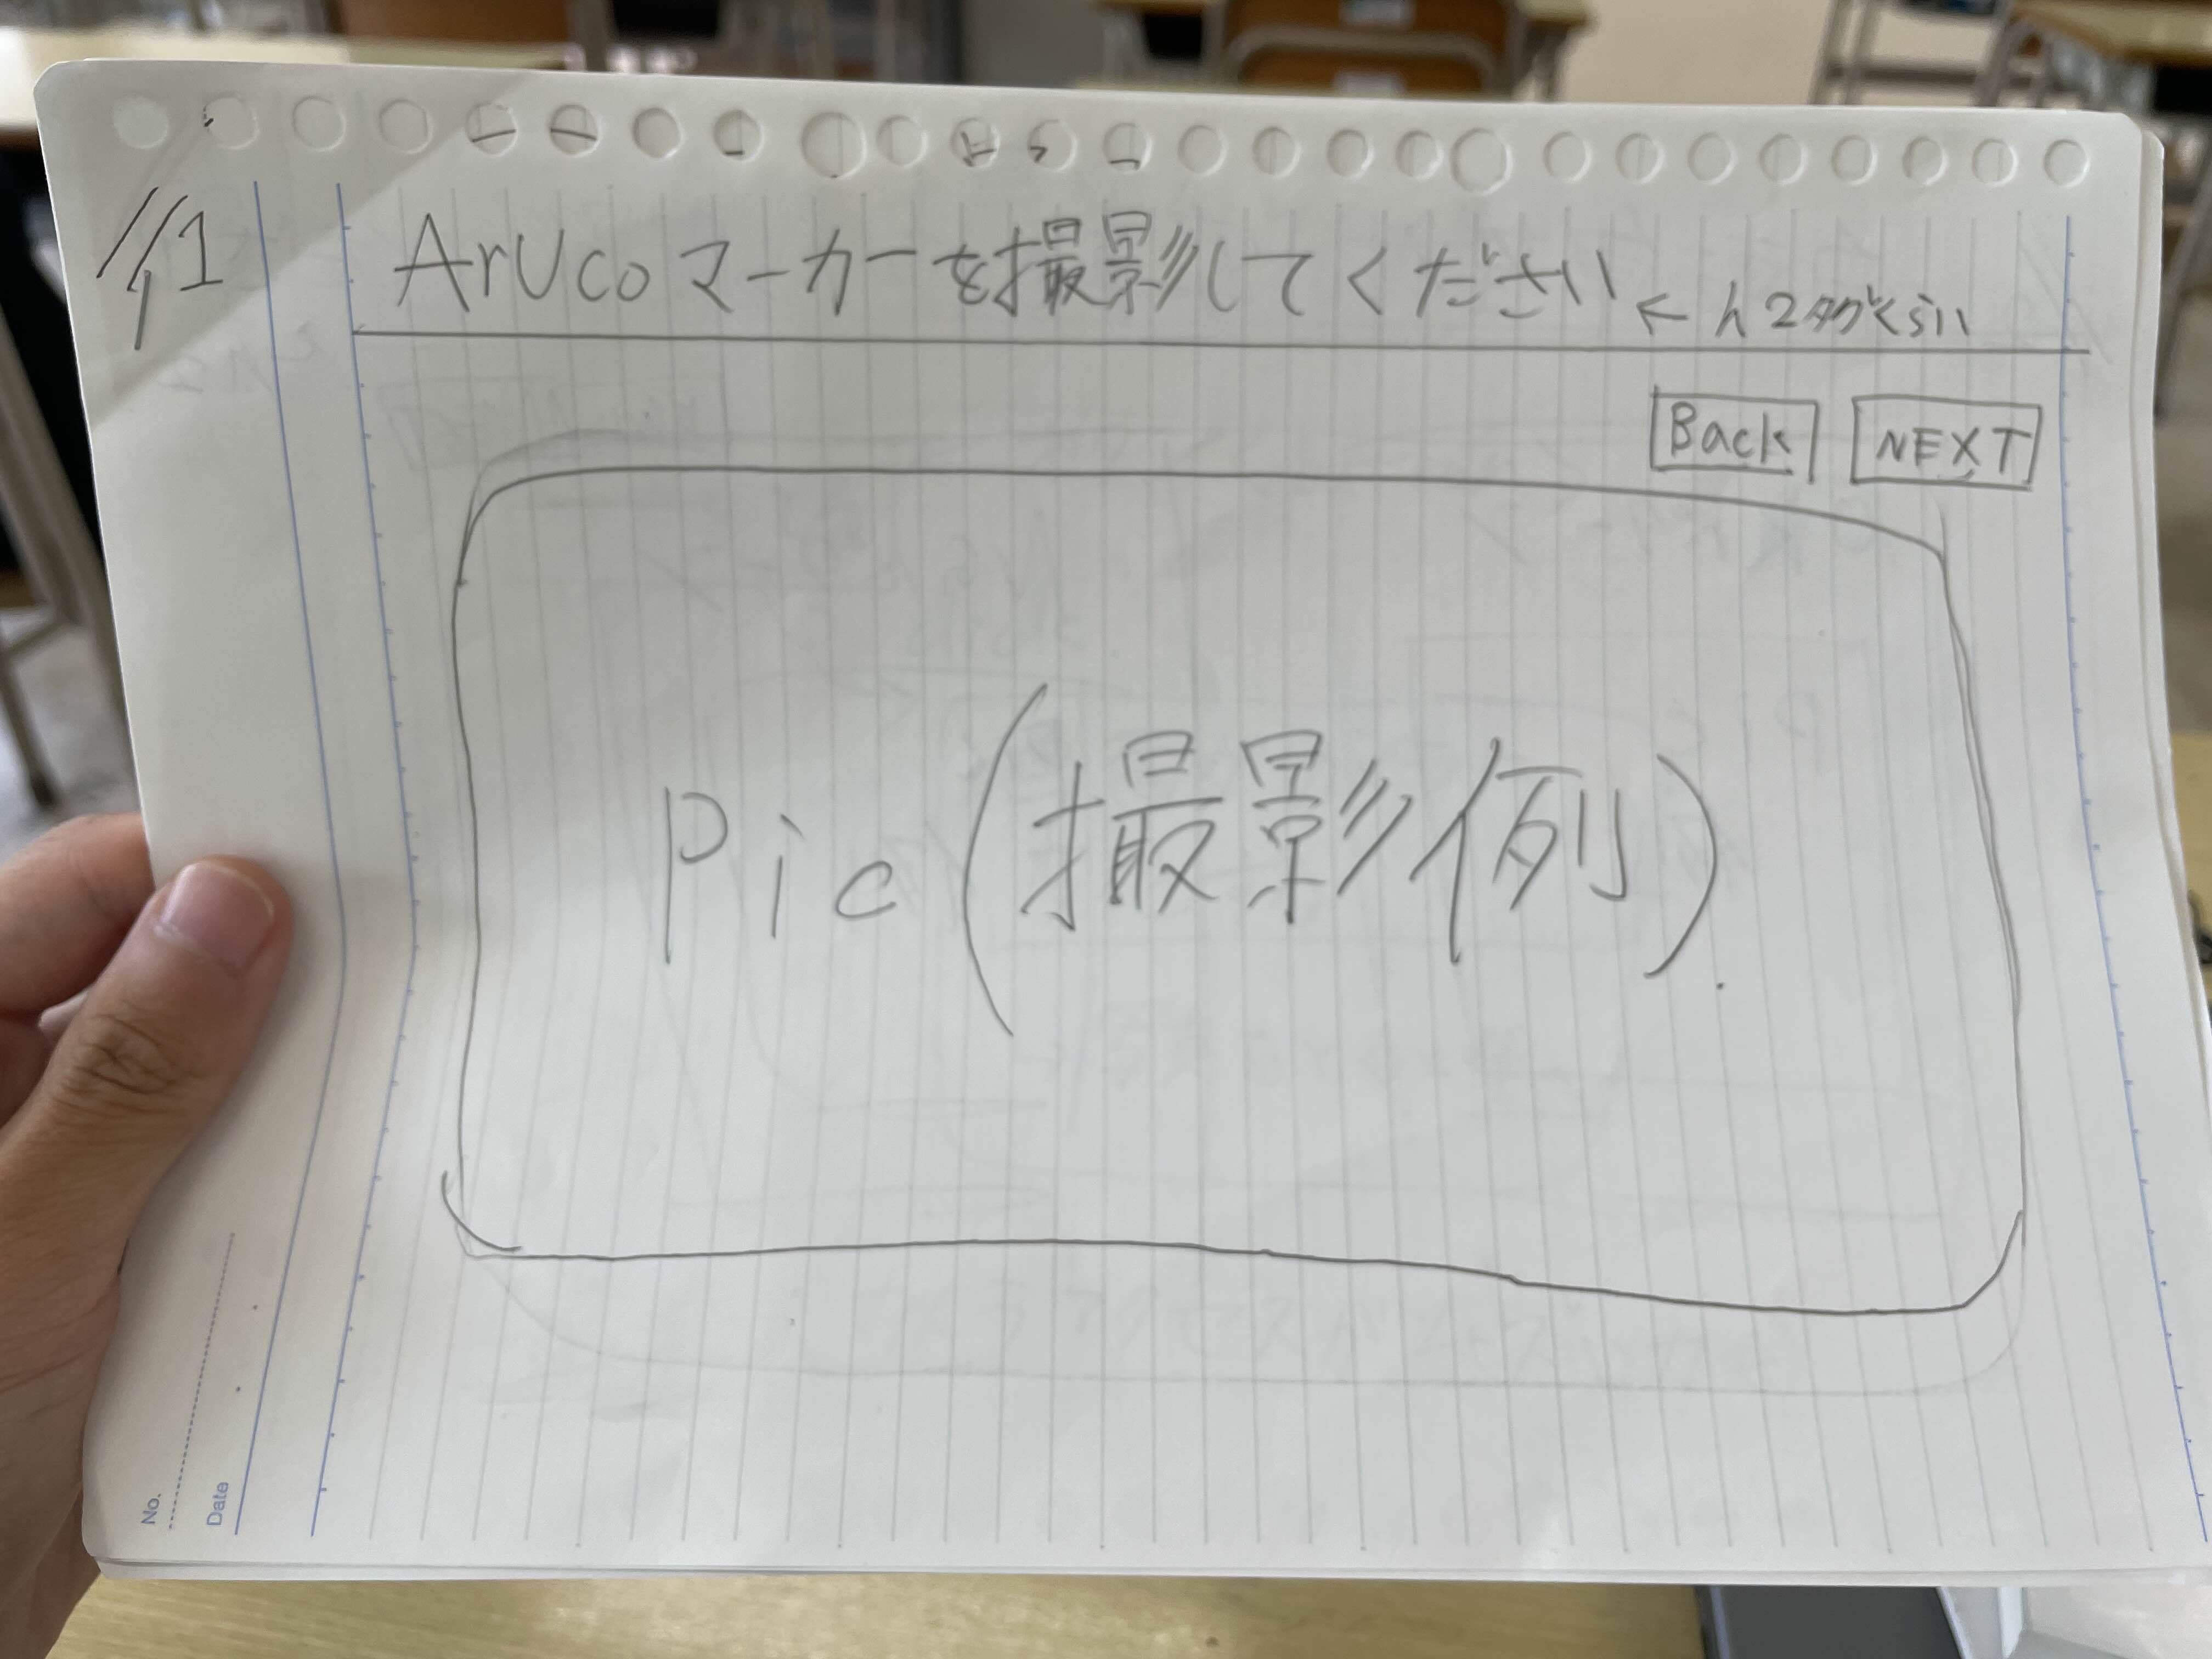 ArUcoマーカーを撮影してください ← h2タグくらい
Back NEXT
Pic(撮影例)
No.
Date